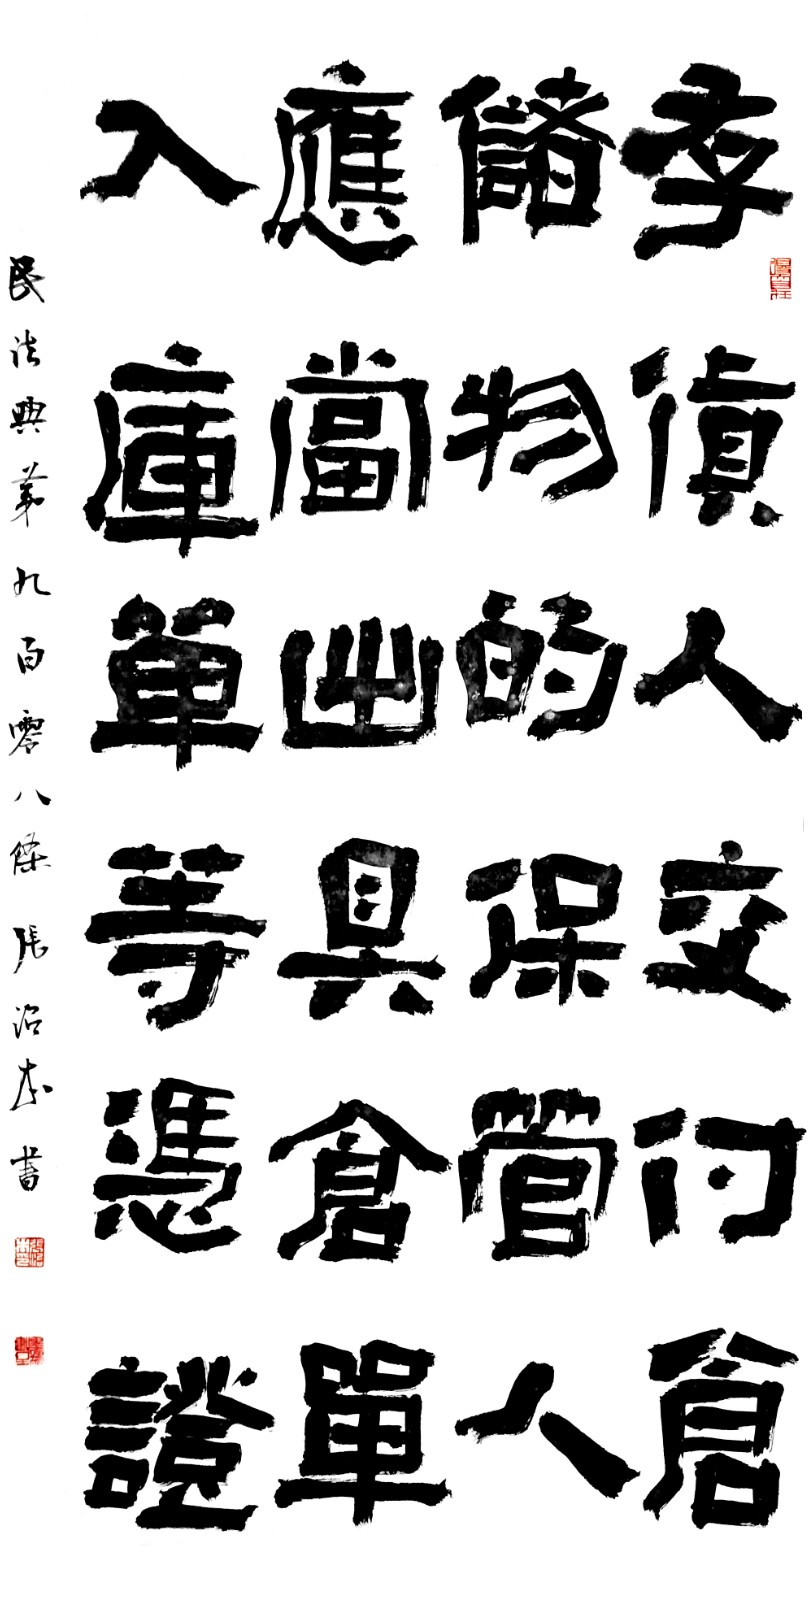 存貨人交付倉
儲物的保管人
應當出具倉單
入庫單等憑證
民法典第九百零八條 張治本書